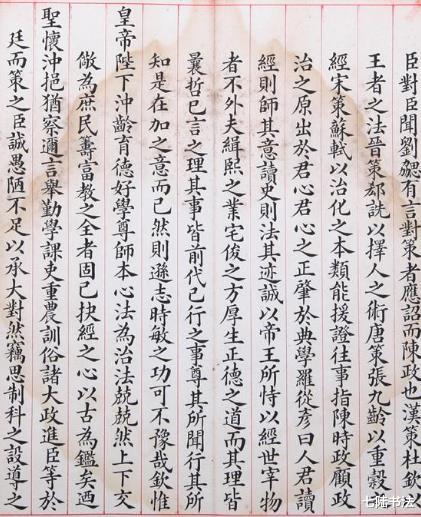 臣對臣聞劉勰有言對策者應詔而陳政也漢策杜欽以
王者之法晉策郄詵以擇人之術唐策張九齡以重穀
經宋策蘇軾以治化之本類能援證往事指陳時政顧政
治之原出於君心君心之正肇於典學羅從彥曰人君讀
經則師其意讀史則法其迹誠以帝王所恃以經世宰物
者不外夫緝熙之業宅俊之方厚生正德之道而其理皆
曩哲已言之理其事皆前代已行之事尊其所聞行其所
知是在加之意而已然則遜志時敏之功可不豫哉欽惟
皇帝陛下沖齡育德好學尊師本心法為治法兢兢然上下交
儆為庶民壽富教之全者固已抉經之心以古為鑑矣迺
聖懷沖挹猶察邇言舉勤學課吏重農訓俗諸大政進臣等於
廷而策之臣誠愚陋不足以承大對然竊思制科之設導之
七陆书法